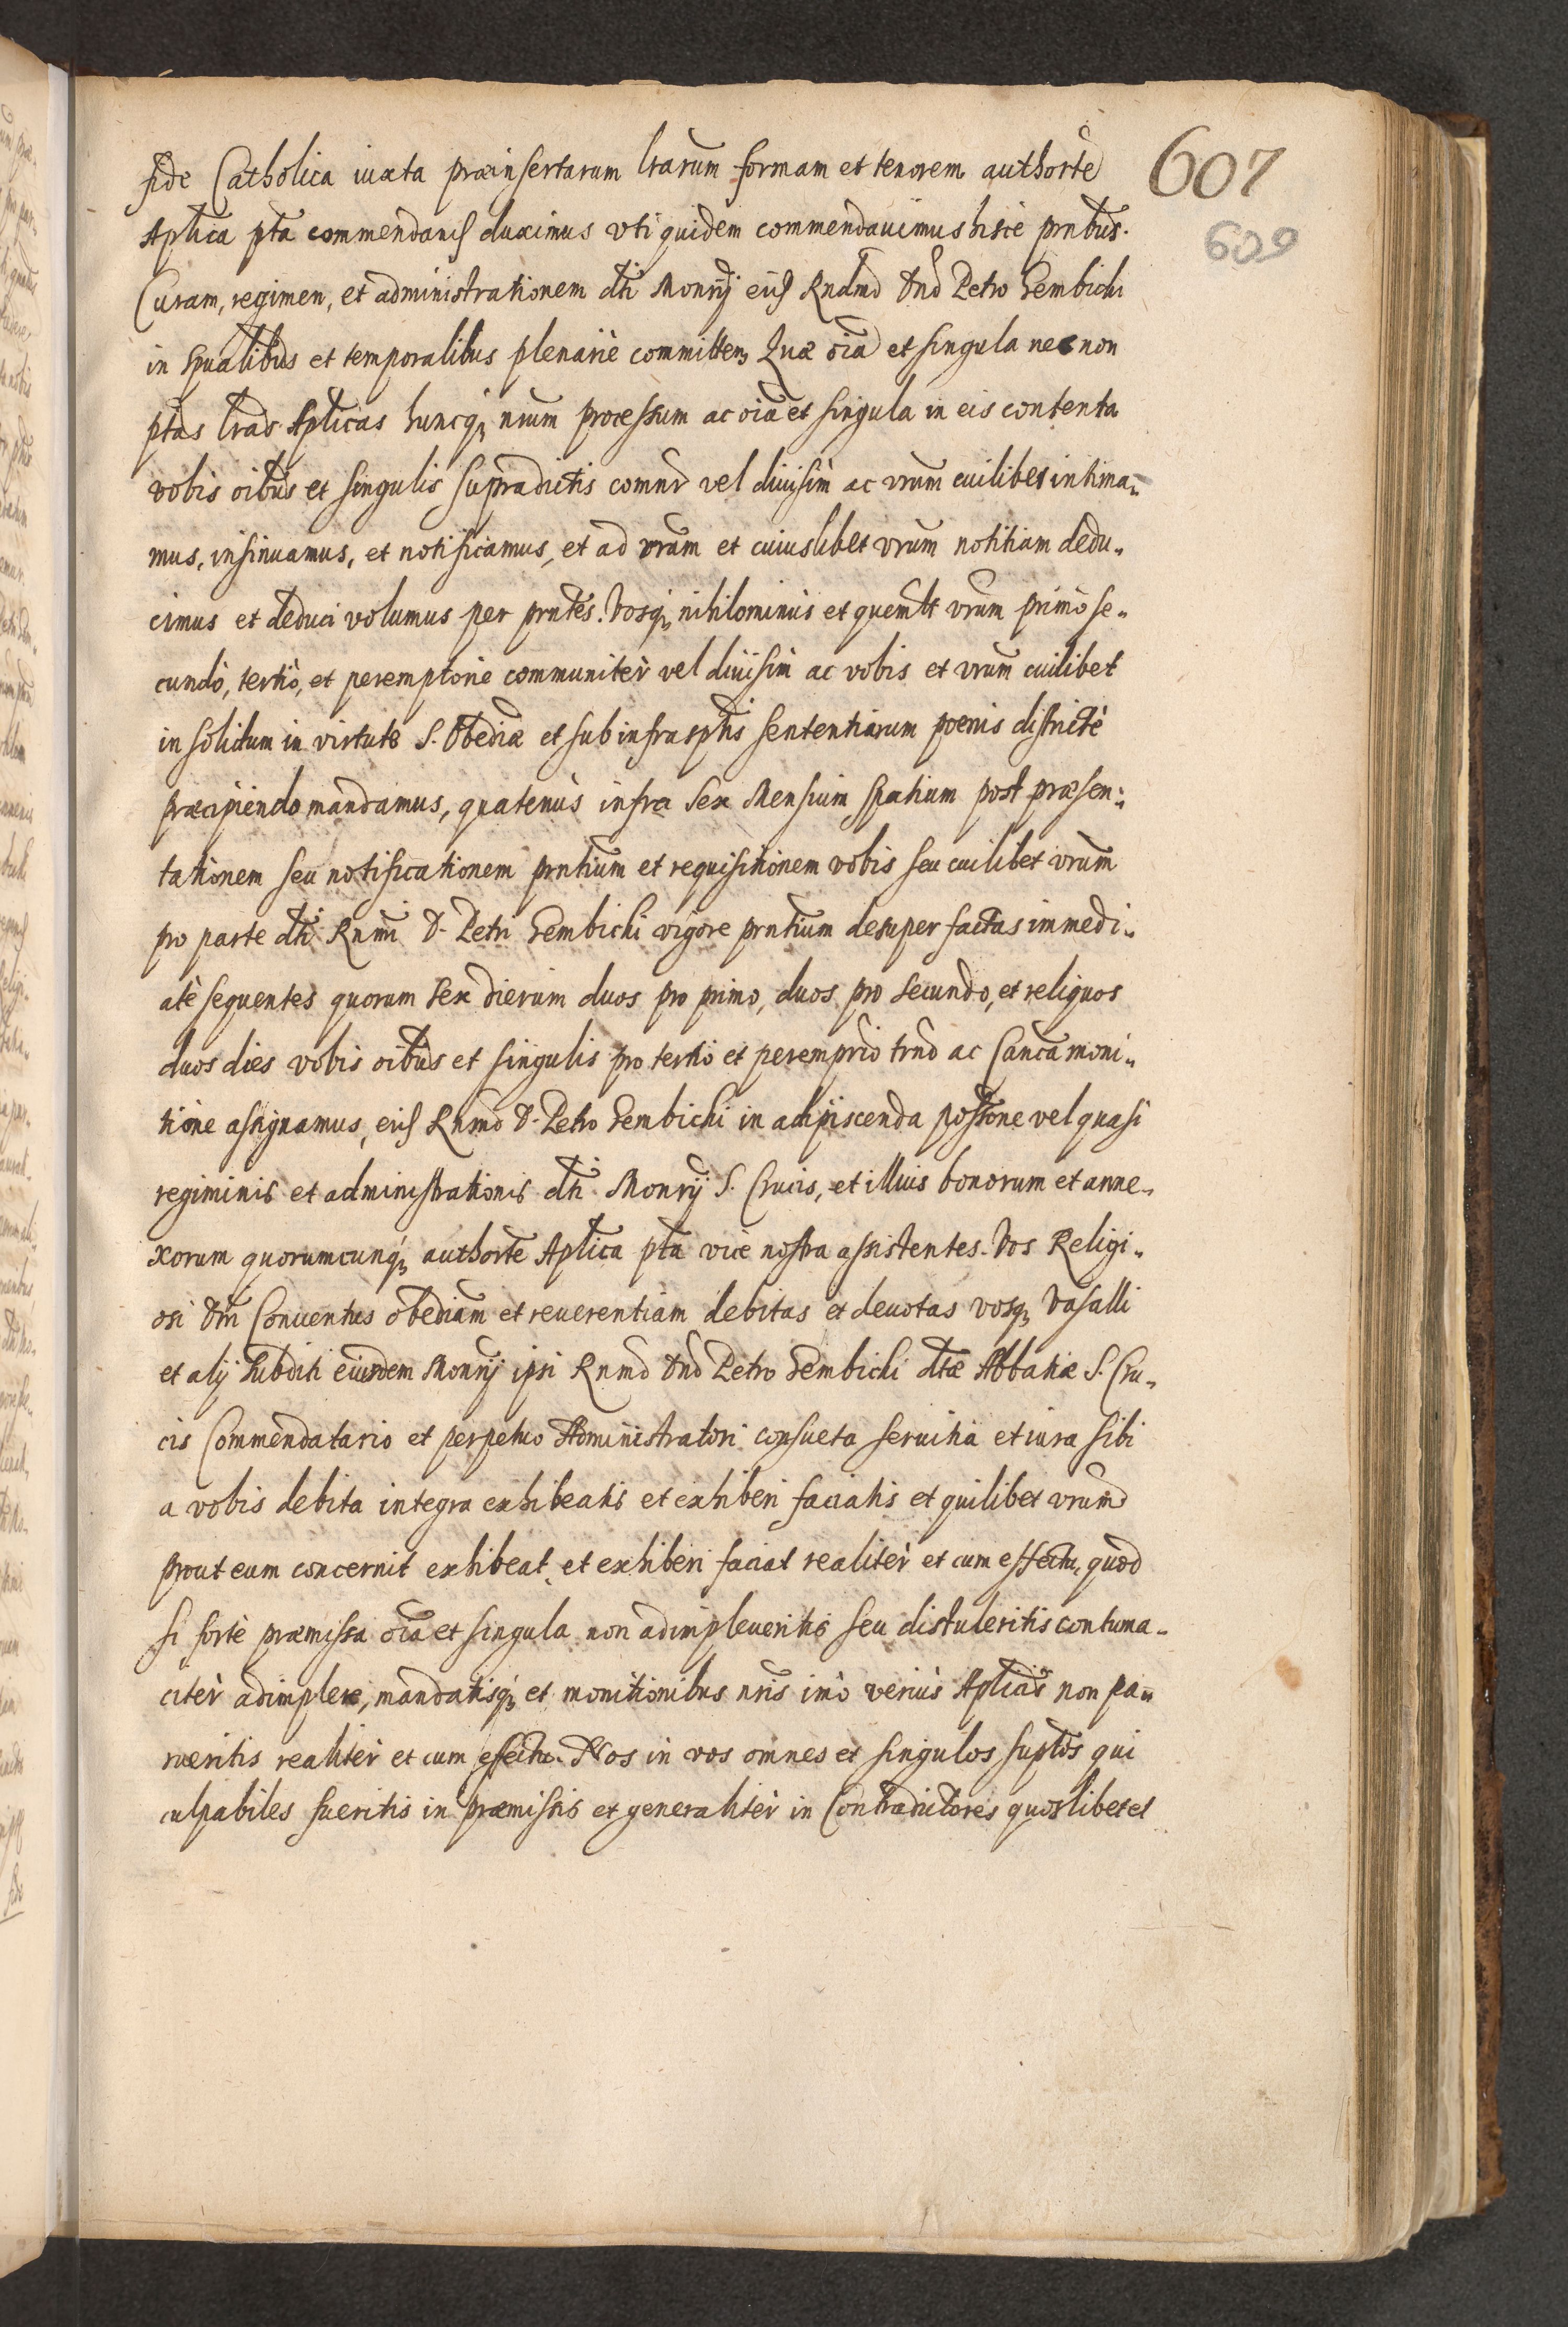 607
609
fide Catholica iuxta præinsertarum lrarum formam et tenorem authorte
Aplica pta commendand duximus vti quidem commendauimus hisce prntbus.
Curam, regimen, et administrationem dti Monrij eid Rndmo Dno Petro Gembicki
in spualibus et temporalibus plenarie committen, Quæ oia et singula nec non
ptas lras Aplicas huncq, nrum processum ac oia et singula in eis contenta
vobis oibus et singulis supradictis comnr vel diuisim ac vrum cuilibet intima-
mus, insinuamus, et notificamus, et ad vram et cuiuslibet vrum notitiam dedu-
cimus et deduci volumus per prntes. Vosq, nihilominus et quemlt vrum primo se-
cundò, tertiò, et peremptorie communitèr vel diuisim ac vobis et vrum cuilibet
in solidum in virtute S. Obediæ et sub infrasptis sententiarum poenis districtè
præcipiendo mandamus, quatenùs infra sex Mensium spatium post præsen-
tationem seu notificationem prntium et requisitionem vobis seu cuilibet vrum
pro parte dti Rnmi D. Petri Gembicki vigore prntium desuper factas immedi-
atè sequentes quorum sex dierum duos pro primo, duos pro secundo, et reliquos
duos dies vobis oibus et singulis pro tertio et peremprio trno ac Canca moni-
tione assignamus, eid Rnmo D. Petro Gembicki in adipiscenda possione vel quasi
regiminis et administrationis dti Monrij S. Crucis, et illius bonorum et anne-
xorum quorumcunq, authorte Aplica pta vice nostra assistentes. Vos Religi-
osi dni Conuentus obediam et reuerentiam debitas et deuotas vosq, Vasalli
et alij subditi eiusdem Monrij ipsi Rnmo Dno Petro Gembicki dtæ Abbatiæ S. Cru-
cis Commendatario et perpetuo Administratori consueta seruitia et iura sibi
a vobis debita integra exhibeatis et exhiberi faciatis et quilibet vrum
prout eum concernit exhibeat et exhiberi faciat realitèr et cum effectu, quod
si fortè præmissa oia et singula non adimpleueritis seu distuleritis contuma-
citèr adimplere, mandatisq, et monitionibus nris imò veriùs Aplicis non pa-
rueritis realitèr et cum effectu. Nos in vos omnes et singulos suptos qui
culpabiles fueritis in præmissis et generalitèr in Contradictores quoslibet et